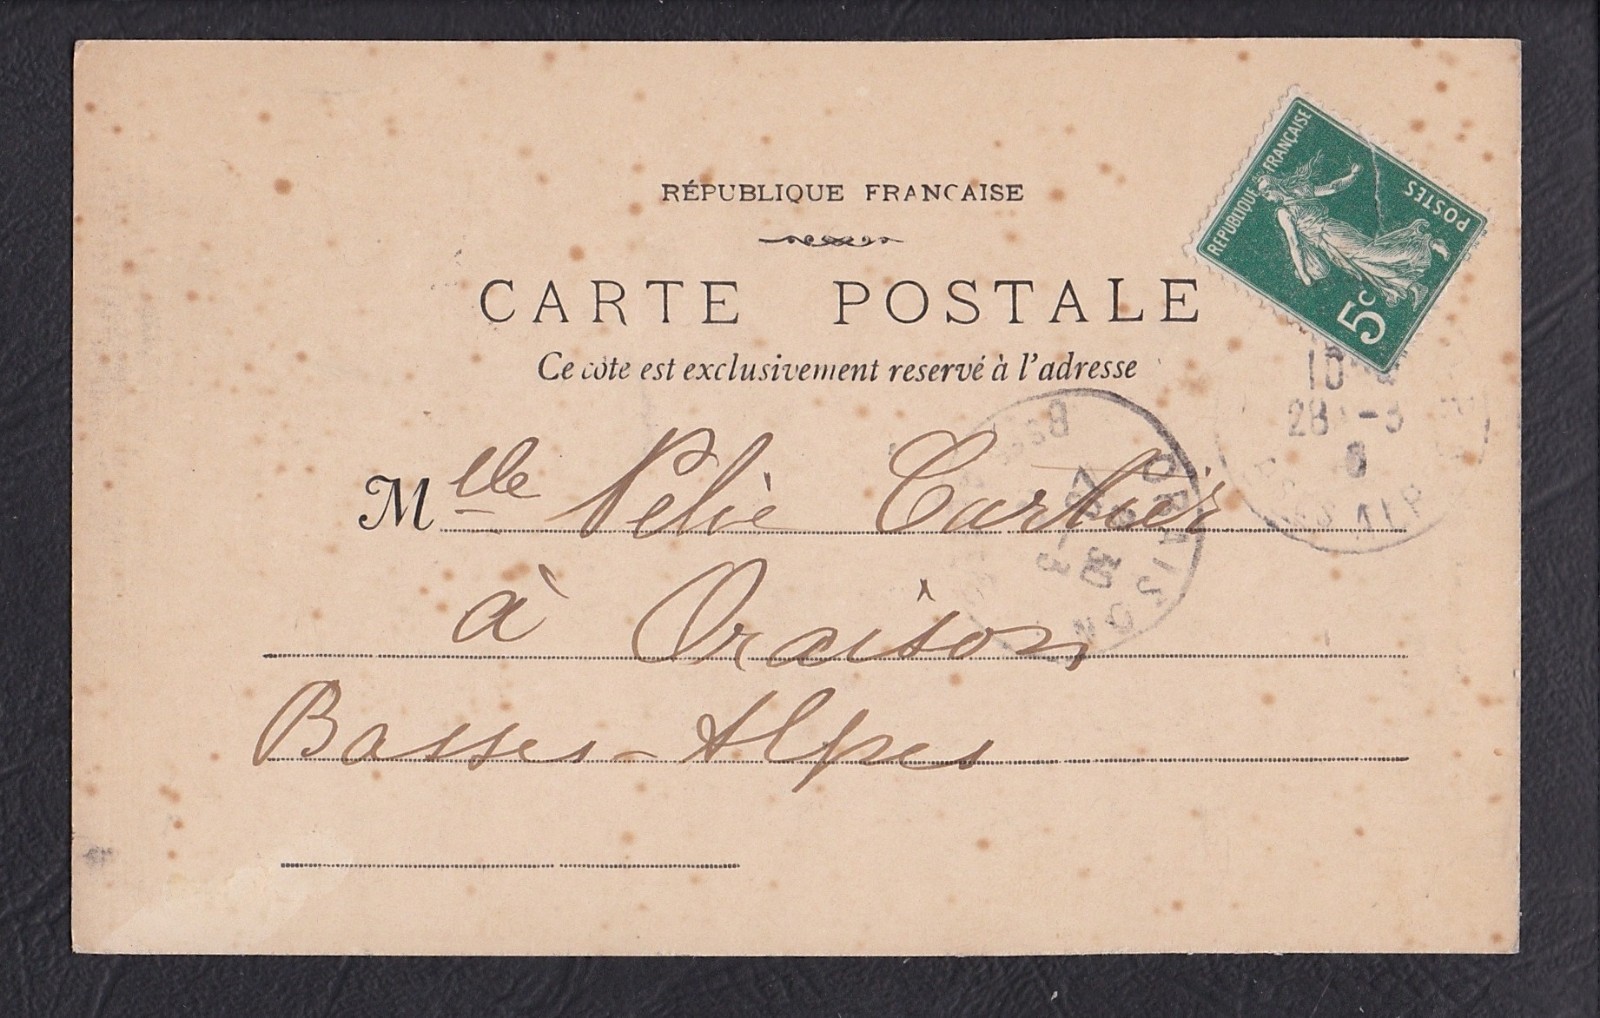 RÉPUBLIQUE FRANÇAISE
POSTES
5c
RÉPUBLIQUE FRANCAISE
CARTE POSTALE
Ce côte est exclusivement reservé à l'adresse
10
28 -3
8
ALP
ORAISON
30 -3
Mlle
à Oraison
Basses-Alpes